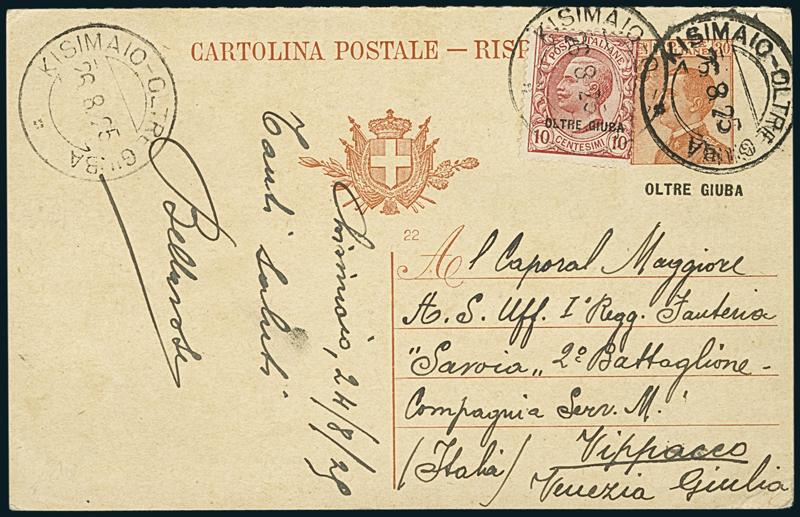 CARTOLINA POSTALE — RISP
KISIMAIO-OLTRE GIUBA
26.8.25
KISIMAIO
8.25
POSTE ITALIANE
OLTRE GIUBA
10 CENTESIMI 10
30
KISIMAIO-OLTRE GIUBA
26.8.25
OLTRE GIUBA
22
Al Caporal Maggiore
A. S. Uff. I° Regg. Fanteria
"Savoia„ 2° Battaglione -
Compagnia Serv. M.
(Italia) Vippacco
Venezia Giulia
Chisimaio, 24/8/25
Tanti saluti